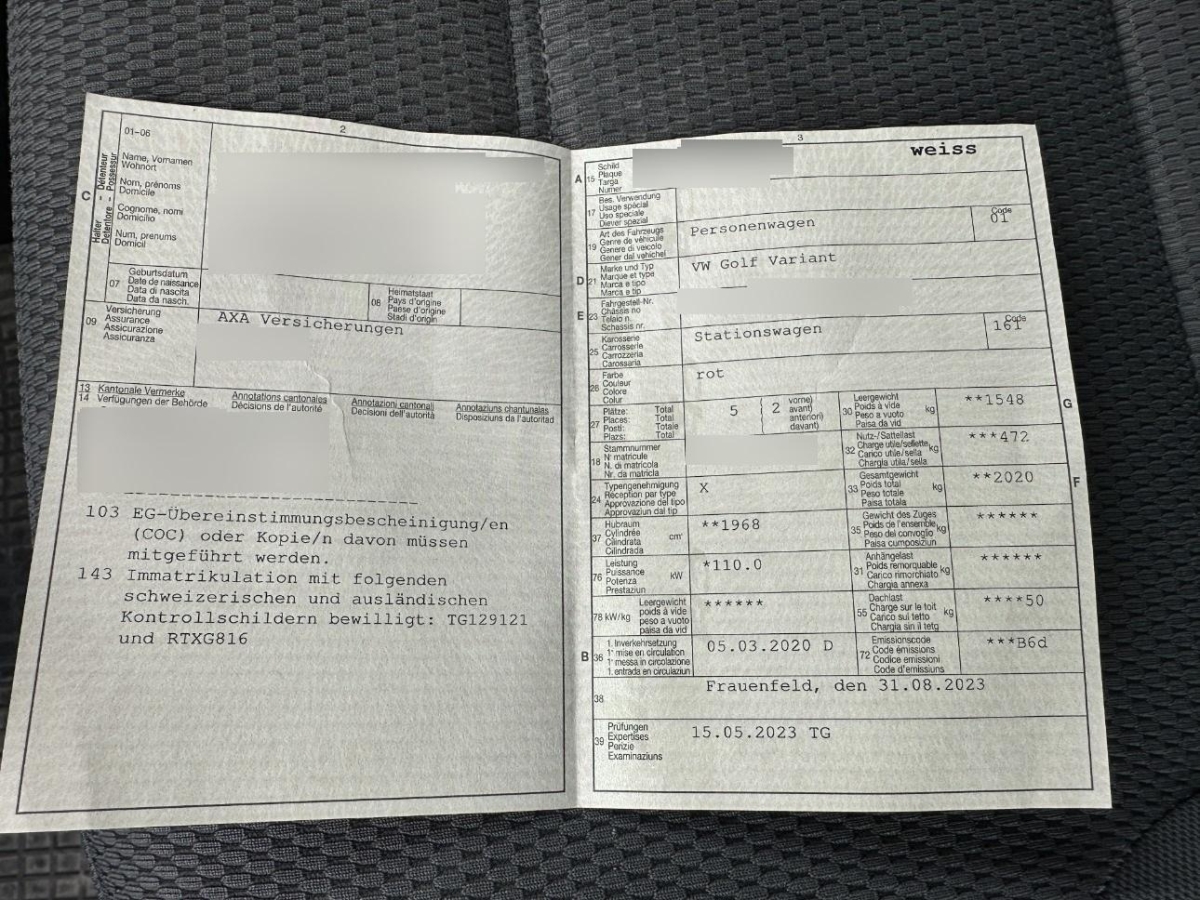 2
01-06
C
Halter - Détenteur
Detentore - Possessur
Name, Vornamen
Wohnort
Nom, prénoms
Domicile
Cognome, nomi
Domicilio
Num, prenums
Domicil
07
Geburtsdatum
Date de naissance
Data di nascita
Data da nasch.
08
Heimatstaat
Pays d'origine
Paese d'origine
Stadi d'origin
09
Versicherung
Assurance
Assicurazione
Assicuranza
AXA Versicherungen
13 Kantonale Vermerke Annotations cantonales Annotazioni cantonali Annotaziuns chantunalas
14 Verfügungen der Behörde Décisions de l'autorité Decisioni dell'autorità Disposiziuns da l'autoritad
103 EG-Übereinstimmungsbescheinigung/en
(COC) oder Kopie/n davon müssen
mitgeführt werden.
143 Immatrikulation mit folgenden
schweizerischen und ausländischen
Kontrollschildern bewilligt: TG129121
und RTXG816
3
weiss
A 15
Schild
Plaque
Targa
Numer
17
Bes. Verwendung
Usage spécial
Uso speciale
Diever spezial
19
Art des Fahrzeugs
Genre de véhicule
Genere di veicolo
Gener dal vehichel
Personenwagen
Code
01
D 21
Marke und Typ
Marque et type
Marca e tipo
Marca e tip
VW Golf Variant
E 23
Fahrgestell-Nr.
Châssis no
Telaio n.
Schassis nr.
25
Karosserie
Carrosserie
Carrozzeria
Carossaria
Stationswagen
Code
161
26
Farbe
Couleur
Colore
Colur
rot
27
Plätze: Total
Places: Total
Posti: Totale
Plazs: Total
5
2
vorne)
avant)
anteriori)
davant)
30
Leergewicht
Poids à vide
Peso a vuoto
Paisa da vid
kg
**1548
G
18
Stammnummer
N° matricule
N. di matricola
Nr. da matricla
32
Nutz-/Sattellast
Charge utile/sellette
Carico utile/sella
Chargia utila/sella
kg
***472
24
Typengenehmigung
Réception par type
Approvazione del tipo
Approvaziun dal tip
X
33
Gesamtgewicht
Poids total
Peso totale
Paisa totala
kg
**2020
F
37
Hubraum
Cylindrée
Cilindrata
Cilindrada
cm³
**1968
35
Gewicht des Zuges
Poids de l'ensemble
Peso del convoglio
Paisa cumposiziun
kg
******
76
Leistung
Puissance
Potenza
Prestaziun
kW
*110.0
31
Anhängelast
Poids remorquable
Carico rimorchiato
Chargia annexa
kg
******
78 kW/kg
Leergewicht
poids à vide
peso a vuoto
paisa da vid
******
55
Dachlast
Charge sur le toit
Carico sul tetto
Chargia sin il tetg
kg
****50
B 36
1. Inverkehrsetzung
1re mise en circulation
1a messa in circolazione
1. entrada en circulaziun
05.03.2020 D
72
Emissionscode
Code émissions
Codice emissioni
Code d'emissiuns
***B6d
38
Frauenfeld, den 31.08.2023
39
Prüfungen
Expertises
Perizie
Examinaziuns
15.05.2023 TG